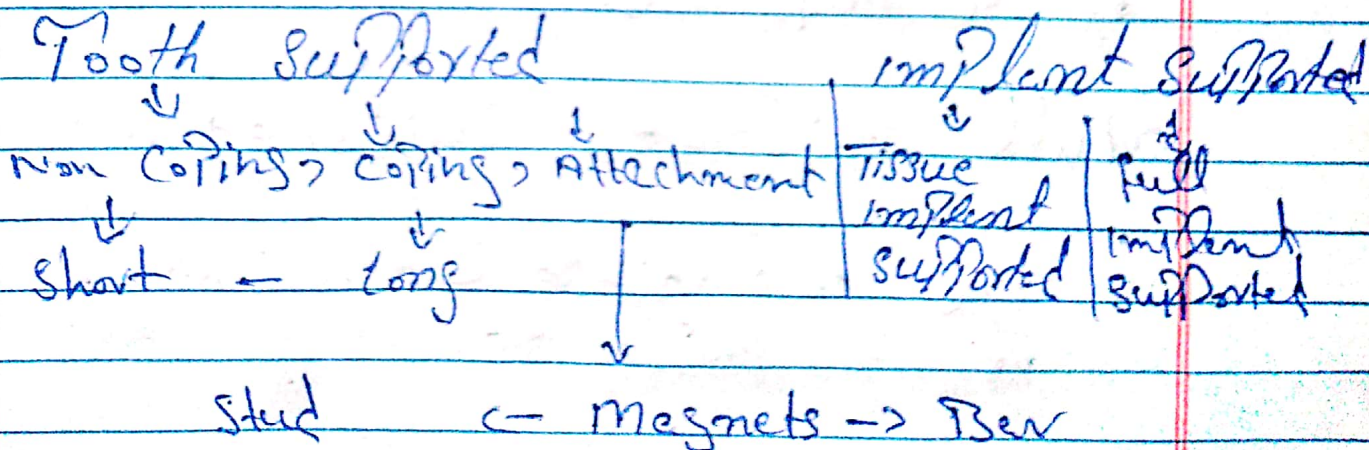 Tooth supported implant supported
Non coping, coping, Attachment Tissue implant supported full implant supported
short - long
stud <- Magnets -> Bar